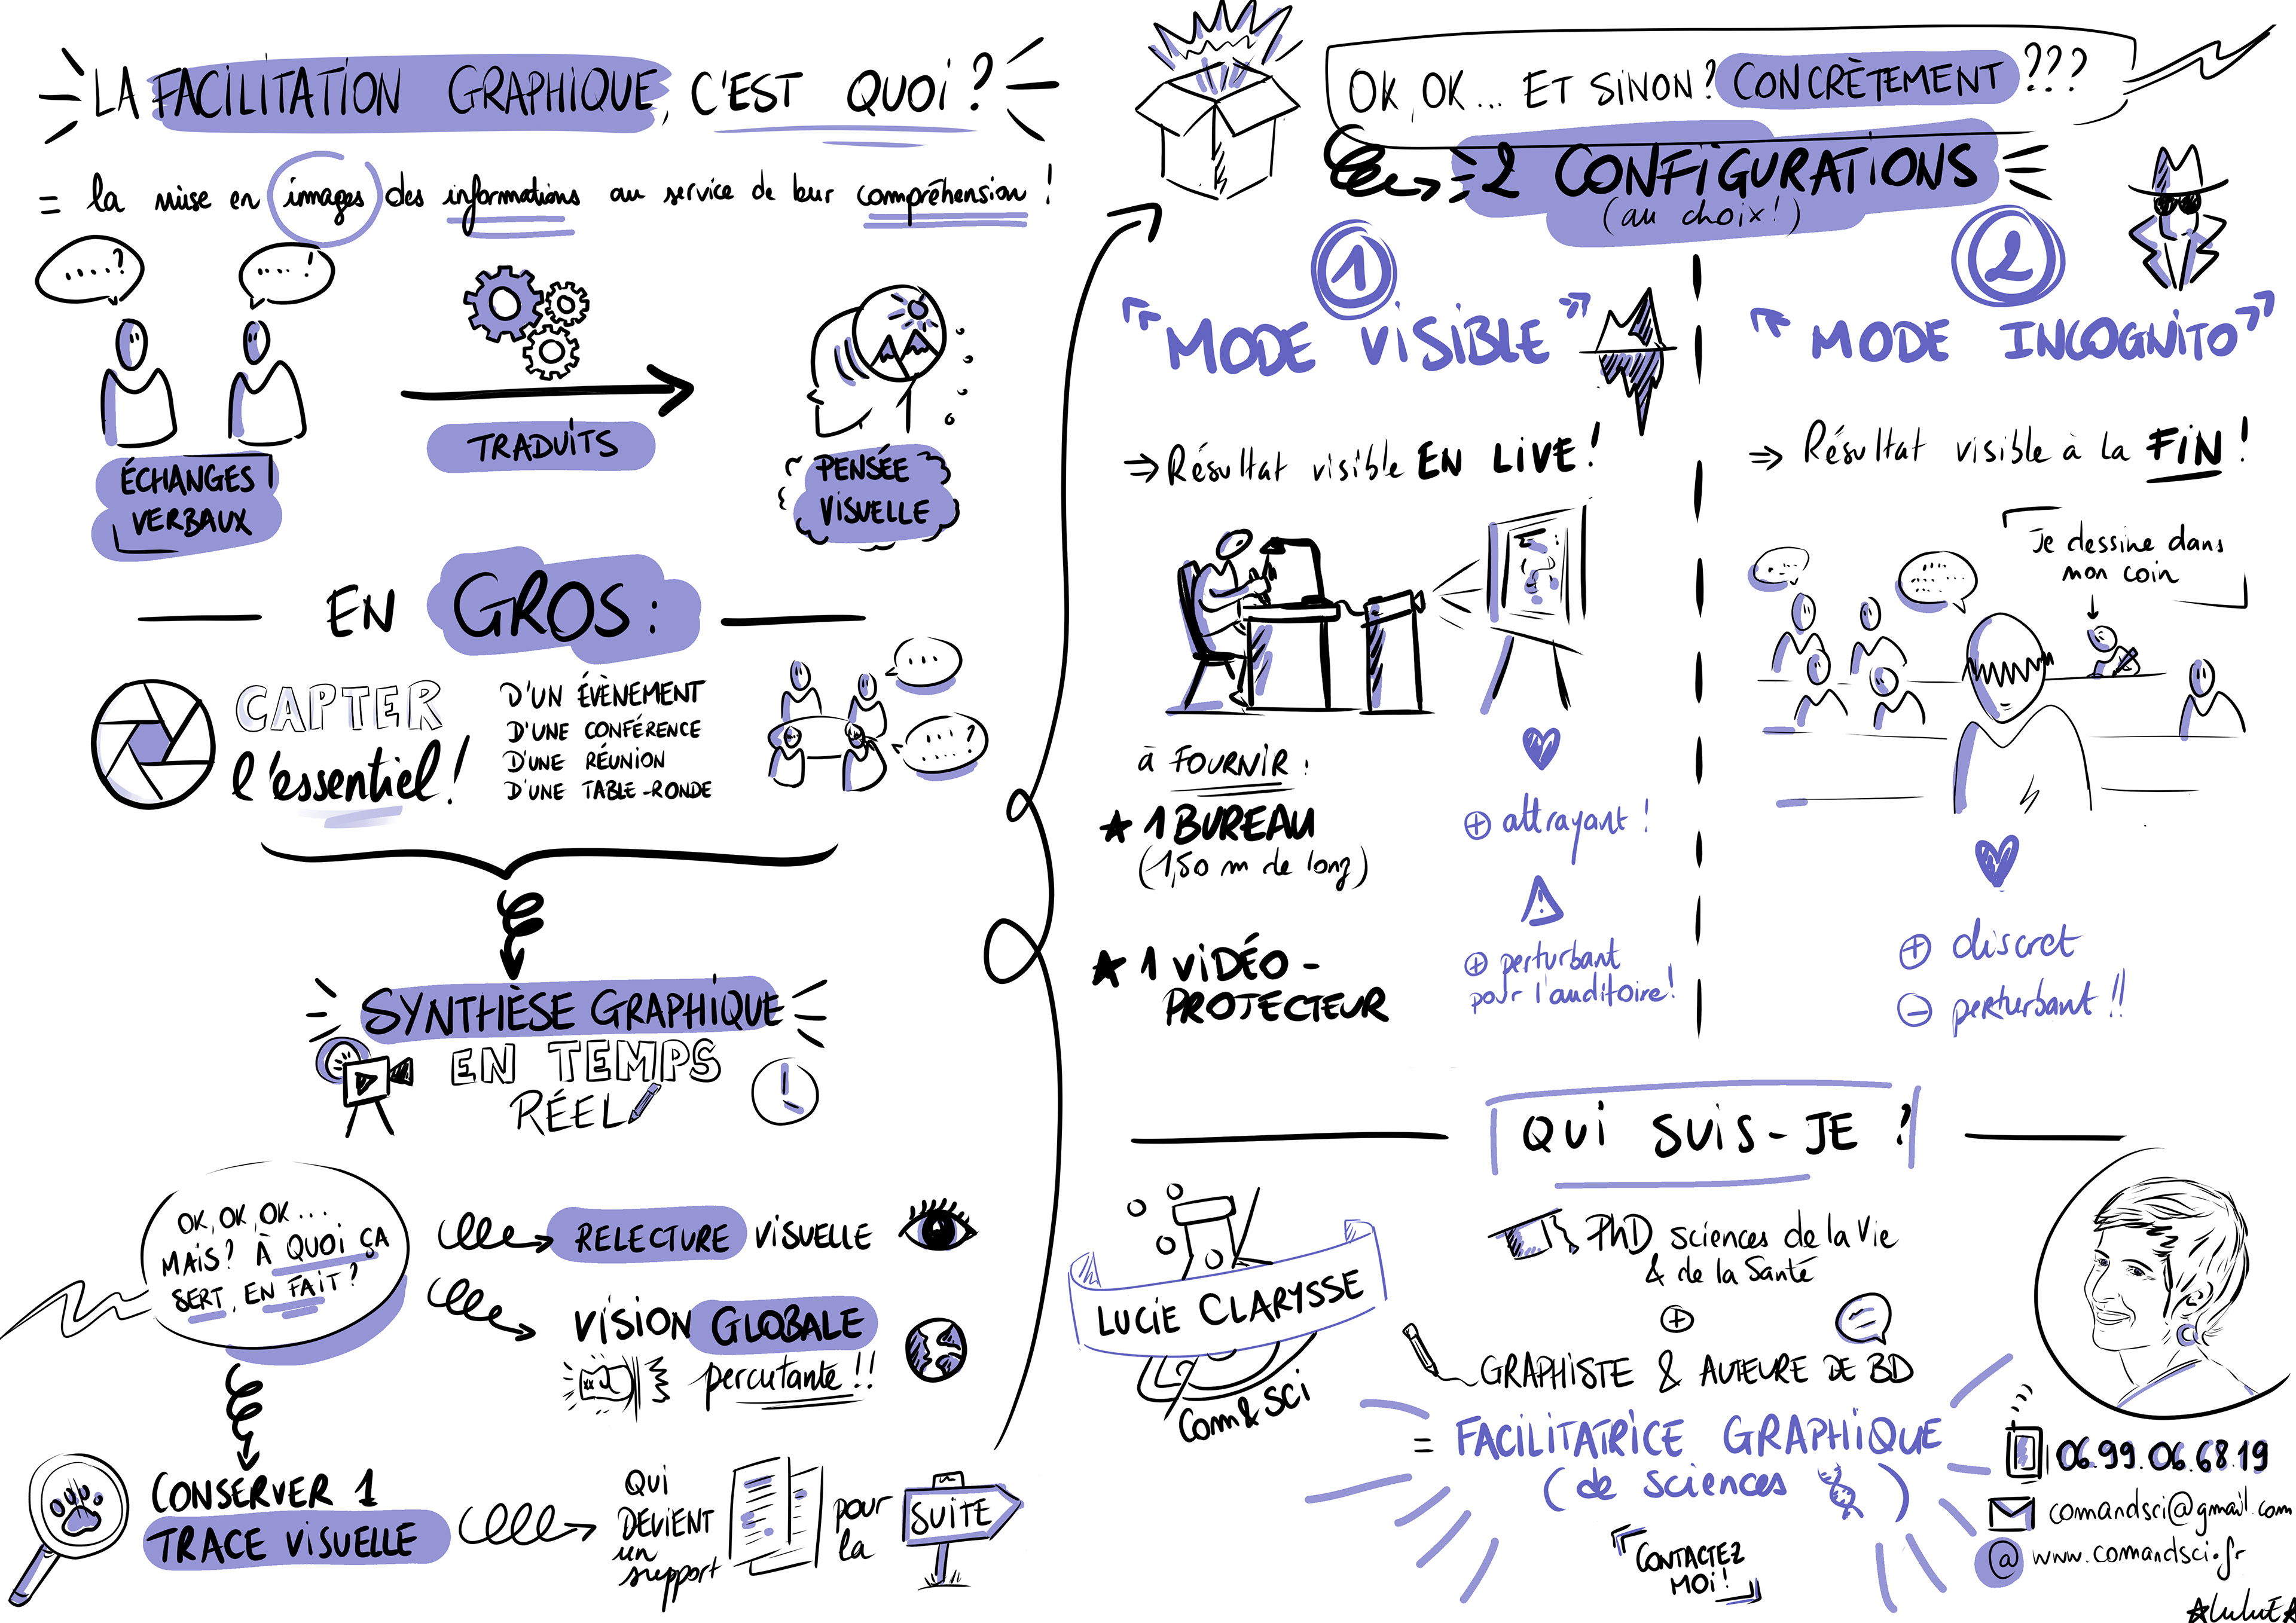 LA FACILITATION GRAPHIQUE, C'EST QUOI ?
= la mise en images des informations au service de leur compréhension !
....?
....!
TRADUITS
ÉCHANGES
VERBAUX
PENSÉE
VISUELLE
EN GROS :
CAPTER
l'essentiel !
D'UN ÉVÈNEMENT
D'UNE CONFÉRENCE
D'UNE RÉUNION
D'UNE TABLE-RONDE
...
....?
SYNTHÈSE GRAPHIQUE
EN TEMPS
RÉEL
OK, OK, OK...
MAIS? À QUOI ÇA
SERT, EN FAIT?
RELECTURE VISUELLE
VISION GLOBALE
percutante !!
CONSERVER 1
TRACE VISUELLE
QUI
DEVIENT
un
support
pour
la
SUITE
OK, OK... ET SINON? CONCRÈTEMENT ???
2 CONFIGURATIONS
(au choix!)
1
"MODE VISIBLE"
⇒ Résultat visible EN LIVE !
à FOURNIR :
★ 1 BUREAU
(1,50 m de long)
★ 1 VIDÉO-
PROJECTEUR
+ attrayant !
+ perturbant
pour l'auditoire!
2
"MODE INCOGNITO"
⇒ Résultat visible à la FIN !
Je dessine dans
mon coin
+ discret
- perturbant !!
QUI SUIS-JE ?
LUCIE CLARYSSE
Com&Sci
PhD sciences de la Vie
& de la Santé
+
GRAPHISTE & AUTEURE DE BD
= FACILITATRICE GRAPHIQUE
(de sciences )
CONTACTEZ
MOI !
06.99.06.68.19
comandsci@gmail.com
@ www.comandsci.fr